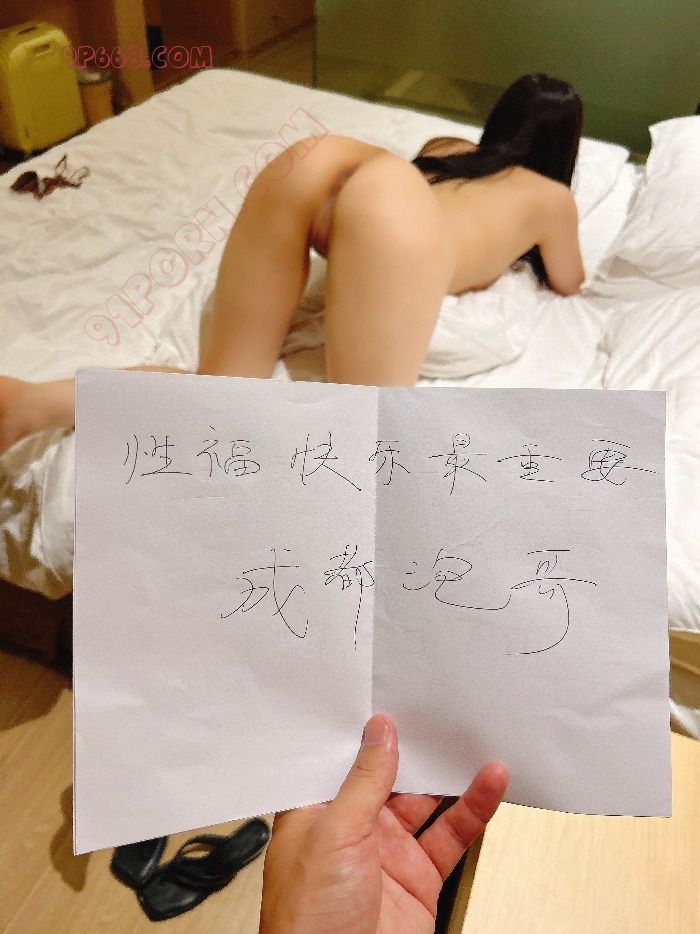 9P668.COM
91PORN.COM
性福快乐最重要
成都泡哥